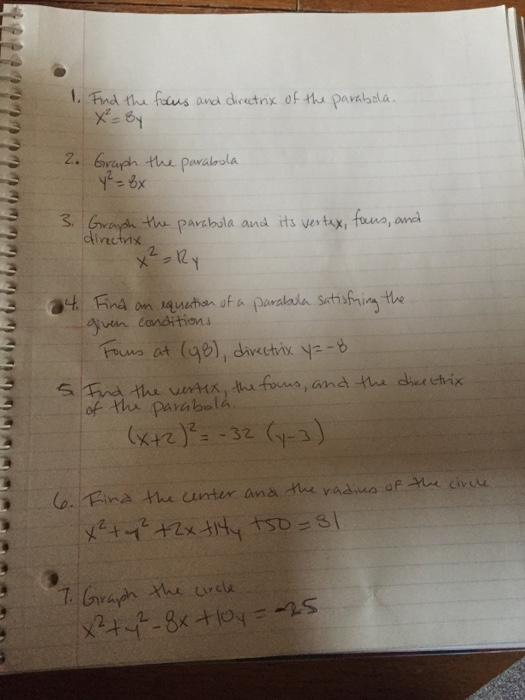 1. Find the focus and directrix of the parabola.
x² = 8y
2. Graph the parabola
y² = 8x
3. Graph the parabola and its vertex, focus, and
directrix
x² = 12y
4. Find an equation of a parabola satisfying the
given conditions
Focus at (0,8), directrix y = -8
5. Find the vertex, the focus, and the directrix
of the parabola.
(x+2)² = -32 (y-3)
6. Find the center and the radius of the circle
x² + y² + 2x + 14y + 50 = 31
7. Graph the circle
x² + y² - 8x + 10y = -25